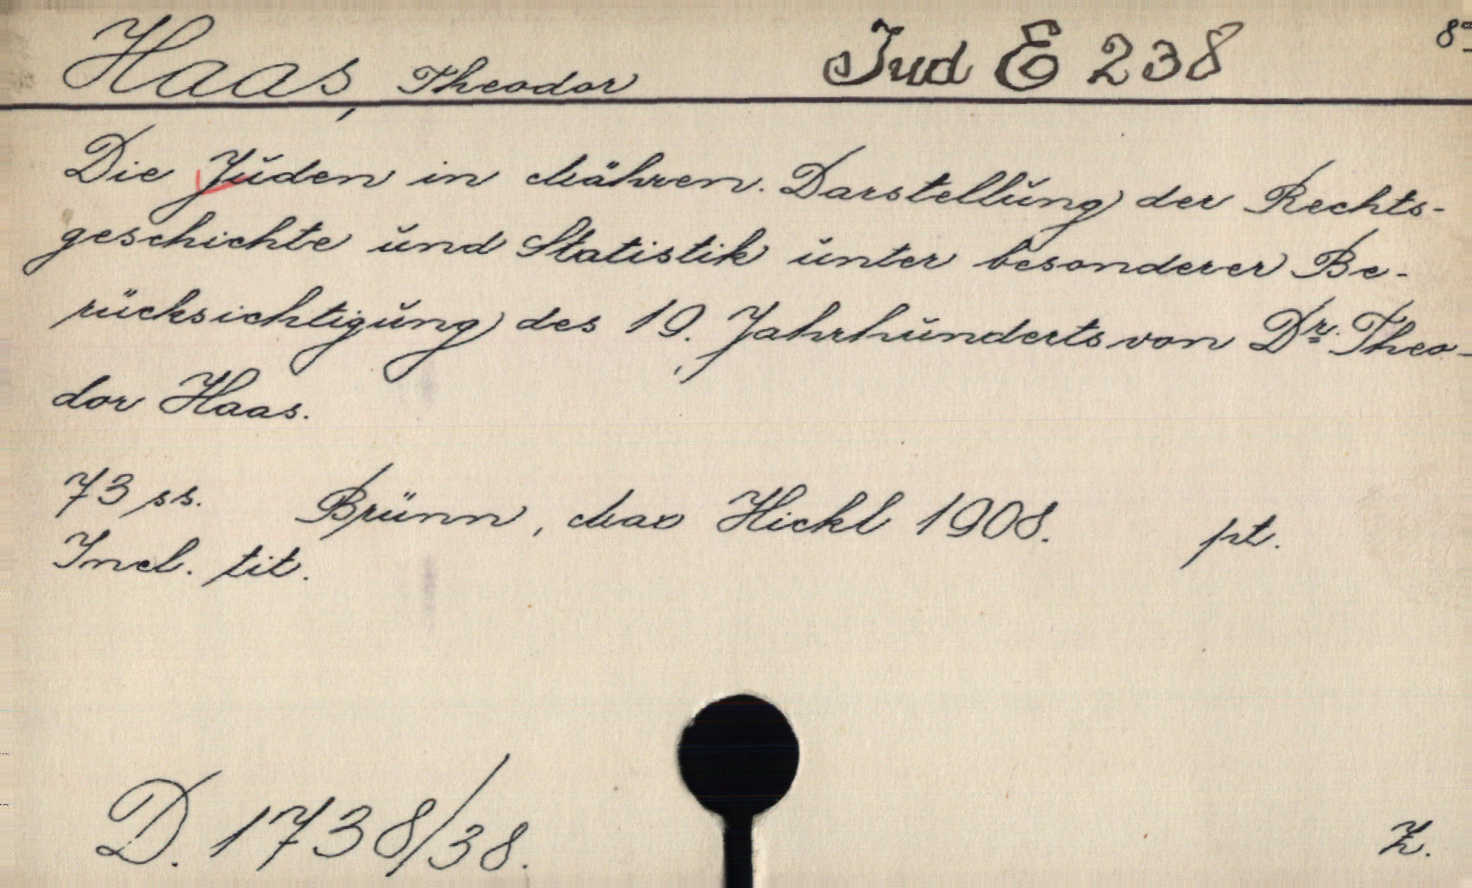 Haas, Theodor Jud E 238 8°
Die Juden in Mähren. Darstellung der Rechts-
geschichte und Statistik unter besonderer Be-
rücksichtigung des 19. Jahrhunderts von Dr. Theo-
dor Haas.
73 ss. Brünn, Max Hickl 1908. pt.
Incl. tit.
D. 1738/38. Z.